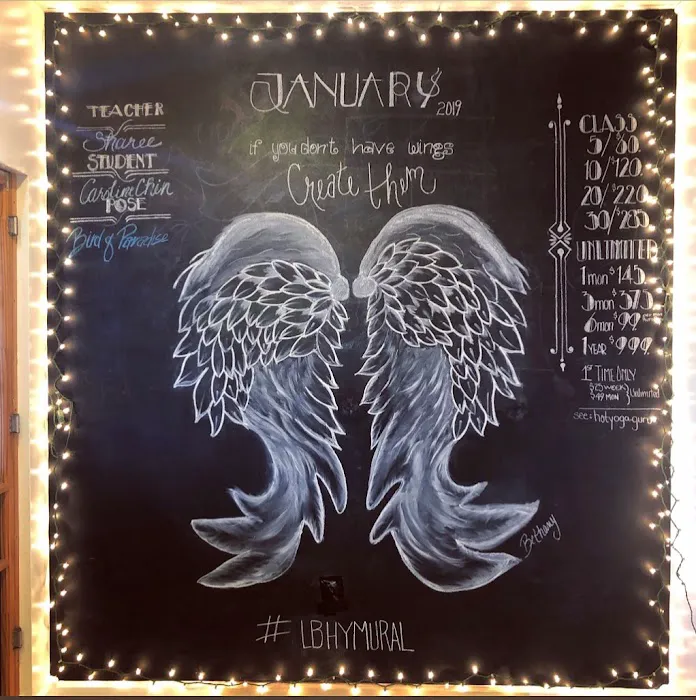 JANUARY
2019
if you don't have wings
Create them
TEACHER
Sharee
STUDENT
Caroline Chin
POSE
Bird of Paradise
CLASS
5/$80
10/$120
20/$220
30/$285
UNLIMITED
1 mon $145
3 mon $375
6 mon $99
1 YEAR $999
1st TIME ONLY
$25 WEEK
$49 MON } Unlimited
see: hotyoga
Bethany
# LBHYMURAL